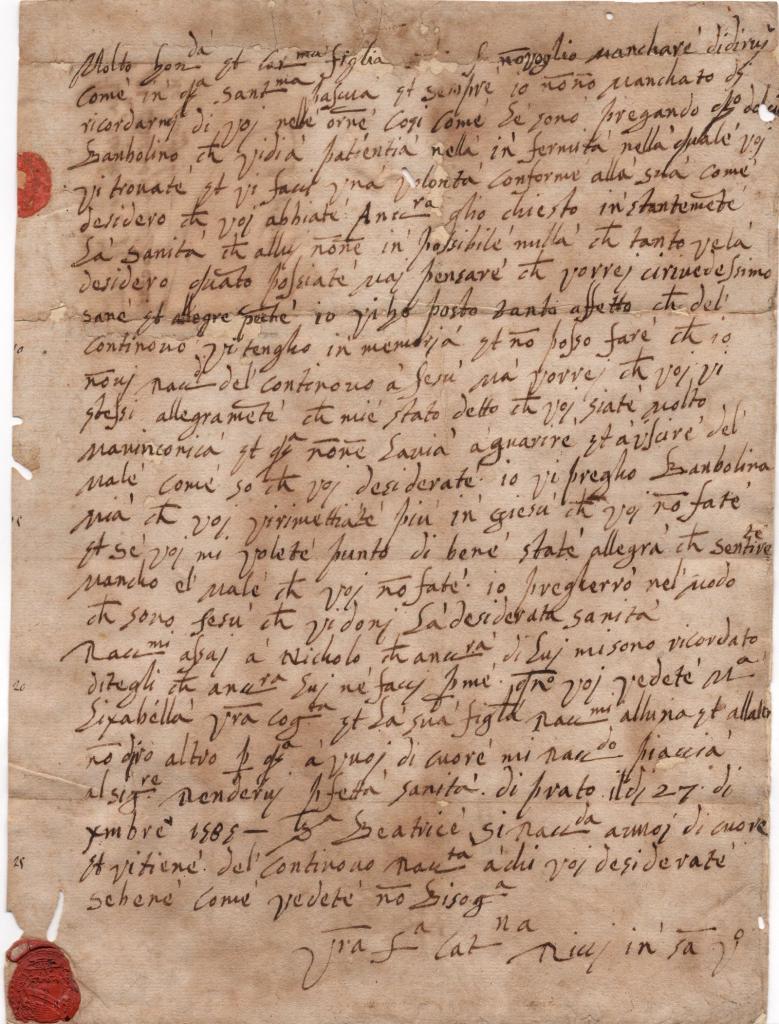 Molto hon^da et Car^ma figlia novoglio manchare didirvj
Come in q^a Sant^ma pascua et sempre io no no manchato di
ricordarmj di voj nelle orne Cosi come le sono pregando
Banbolino ch vidia patientia nella in fermita nella quale voj
vi trovate et vi facci una volonta conforme alla sua come
desidero ch voj abbiate Anc^ra glio chiesto instantemete
La Sanita ch alluj none in possibile nulla ch tanto vela
desidero quato possiate maj pensare ch vorrej
sane et allegre io vi ho posto tanto affetto ch del
Continovo vi tengho in memorja et no posso fare ch io
novj del continovo a Jesu ma vorrej ch voj vi
stessi allegramete ch mie stato detto ch voj siate molto
maninconica et q^a none Lavia a guarire et a uscire del
male come so ch voj desiderate io vi pregho Banbolina
mia ch voj virimettiate piu in giesu ch voj no fate
et se voj mi volete punto di bene state allegra ch sentire^te
mancho el male ch voj no fate io pregherro nel modo
ch sono Jesu ch vi donj La desiderata Sanita
Racc^mi assaj a Nicholo ch anc^ra di Luj misono ricordato
ditegli ch anc^ra Luj ne faccj p me qn^o voj vedete M^a
Lixabella vra cog^ta et La sua figl^a Racc^mi alluna et allaltra
no diro altro p q^a a vuoj di cuore mi Racc^do piaccia
al sig^re Rendervj pfetta sanita di prato il dj 27 di
xmbre 1585 – Beatrice si Racc^da a uuoj di cuore
et vitiene del continovo Racc^ta a chi voj desiderate
sebene come vedete no bisog^a
vra Cat^na Riccj in
10
15
20
25